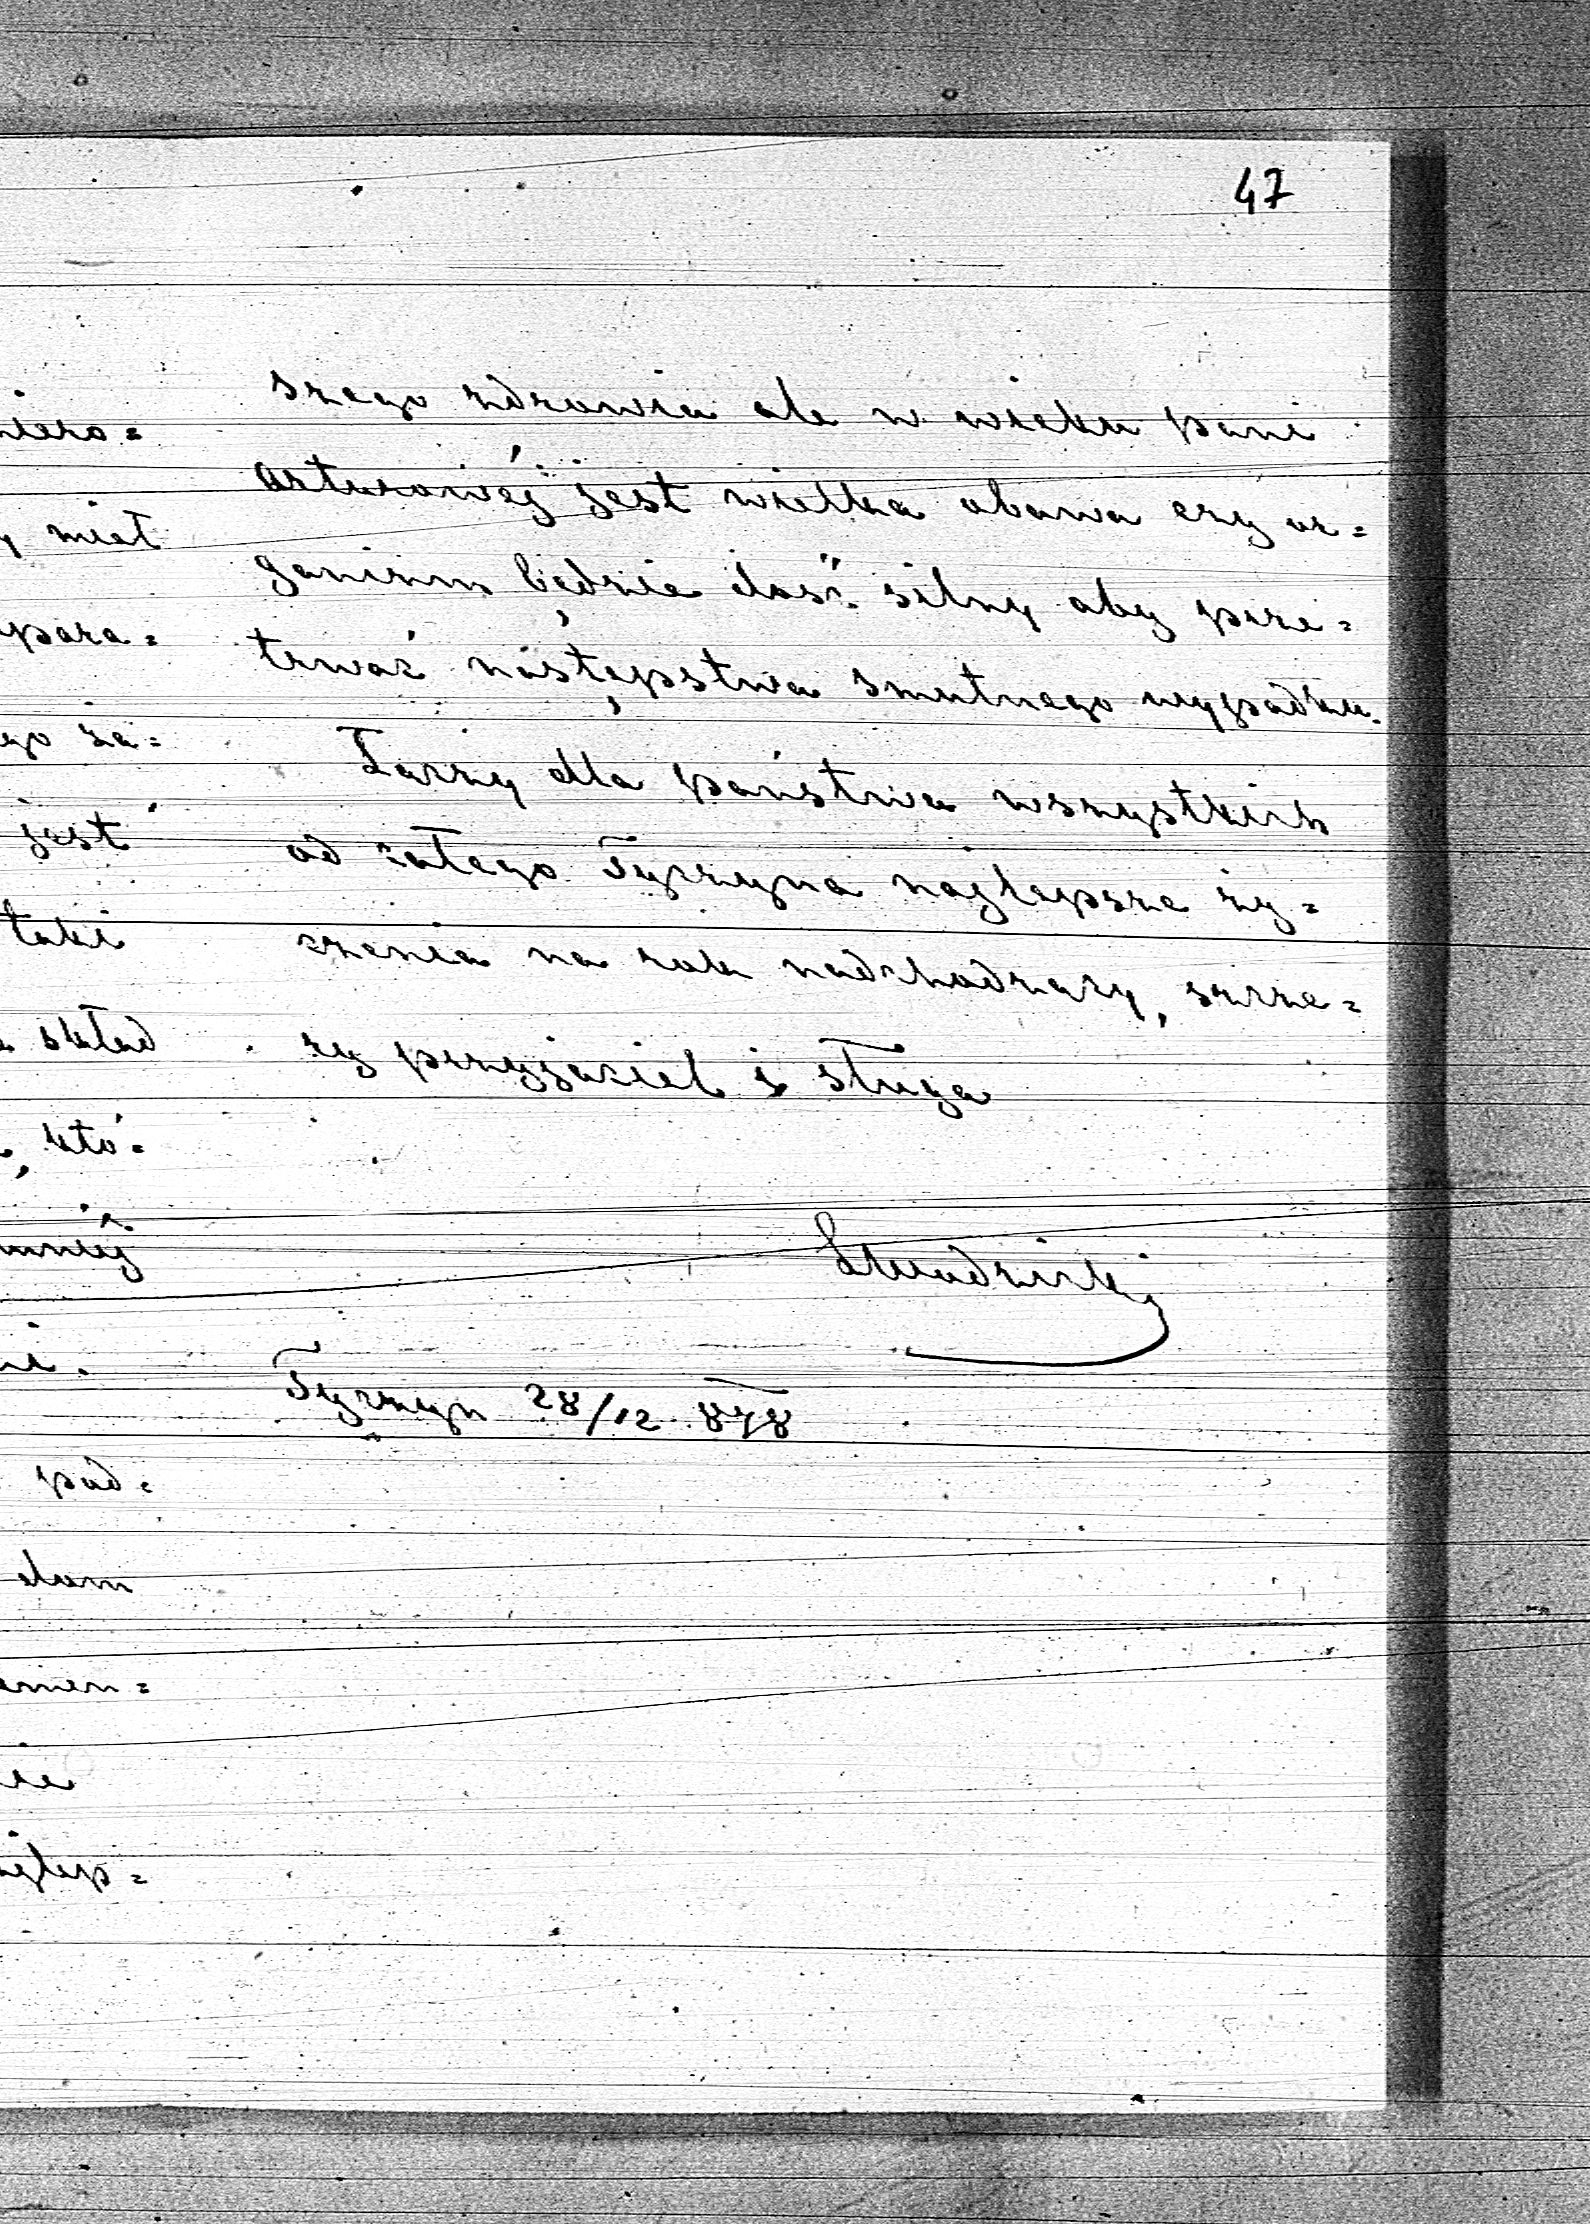 47
szego zdrowia ale w wieku pani
Arturowéj jest wielka obawa czy or=
ganizm będzie dość silny aby prze=
trwać następstwa smutnego wypadku.
Łączy dla państwa wszystkich
od całego Tyczyna najlepsze ży=
czenia na rok nadchodzący, szcze=
ry przyjaciel i sługa
Tyczyn 28/12 878
niero=
miał
para=
jest
taki
skład
któ=
pod=
dom